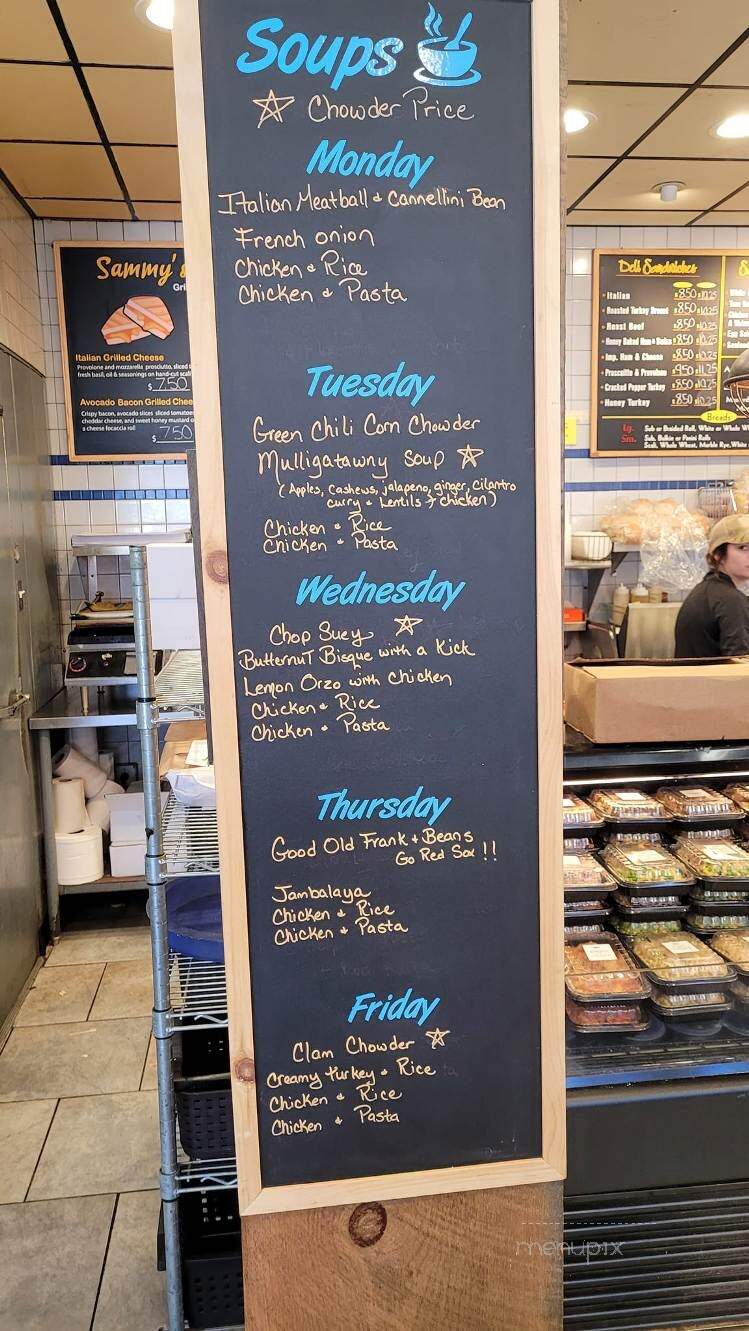 Soups
☆ Chowder Price
Monday
Italian Meatball & Cannellini Bean
French onion
Chicken & Rice
Chicken & Pasta
Tuesday
Green Chili Corn Chowder
Mulligatawny Soup ☆
(Apples, Cashews, jalapeno, ginger, cilantro
curry & Lentils & chicken)
Chicken & Rice
Chicken & Pasta
Wednesday
Chop Suey ☆
Butternut Bisque with a Kick
Lemon Orzo with Chicken
Chicken & Rice
Chicken & Pasta
Thursday
Good Old Frank & Beans
Go Red Sox !!
Jambalaya
Chicken & Rice
Chicken & Pasta
Friday
Clam Chowder ☆
Creamy turkey & Rice
Chicken & Rice
Chicken & Pasta
Sammy's
Gri
Italian Grilled Cheese
Provolone and mozzarella prosciutto, sliced t
fresh basil, oil & seasonings on hand-cut scal
$ 7.50
Avocado Bacon Grilled Chee
Crispy bacon, avocado slices sliced tomatoe
cheddar cheese, and sweet honey mustard o
a cheese focaccia roll
$ 7.50
Deli Sandwiches
Italian 8.50 10.25
Roasted Turkey Breast 8.50 10.25
Roast Beef 8.50 10.25
Honey Baked Ham & Swiss 8.50 10.25
Imp. Ham & Cheese 8.50 10.25
Prosciutto & Provolone 9.50 11.25
Cracked Pepper Turkey 8.50 10.25
Honey Turkey 8.50 10.25
Breads
Lg. Sub or Braided Roll, White or Whole W
Sm. Sub, Bulkie or Panini Rolls
Scali, Whole Wheat, Marble Rye, White
menupix